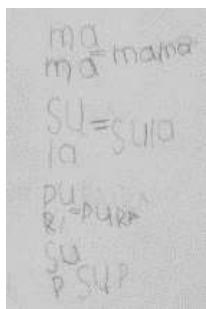 ma
ma=mama
su=sula
la
pu
Ri=puRi
su
p sup